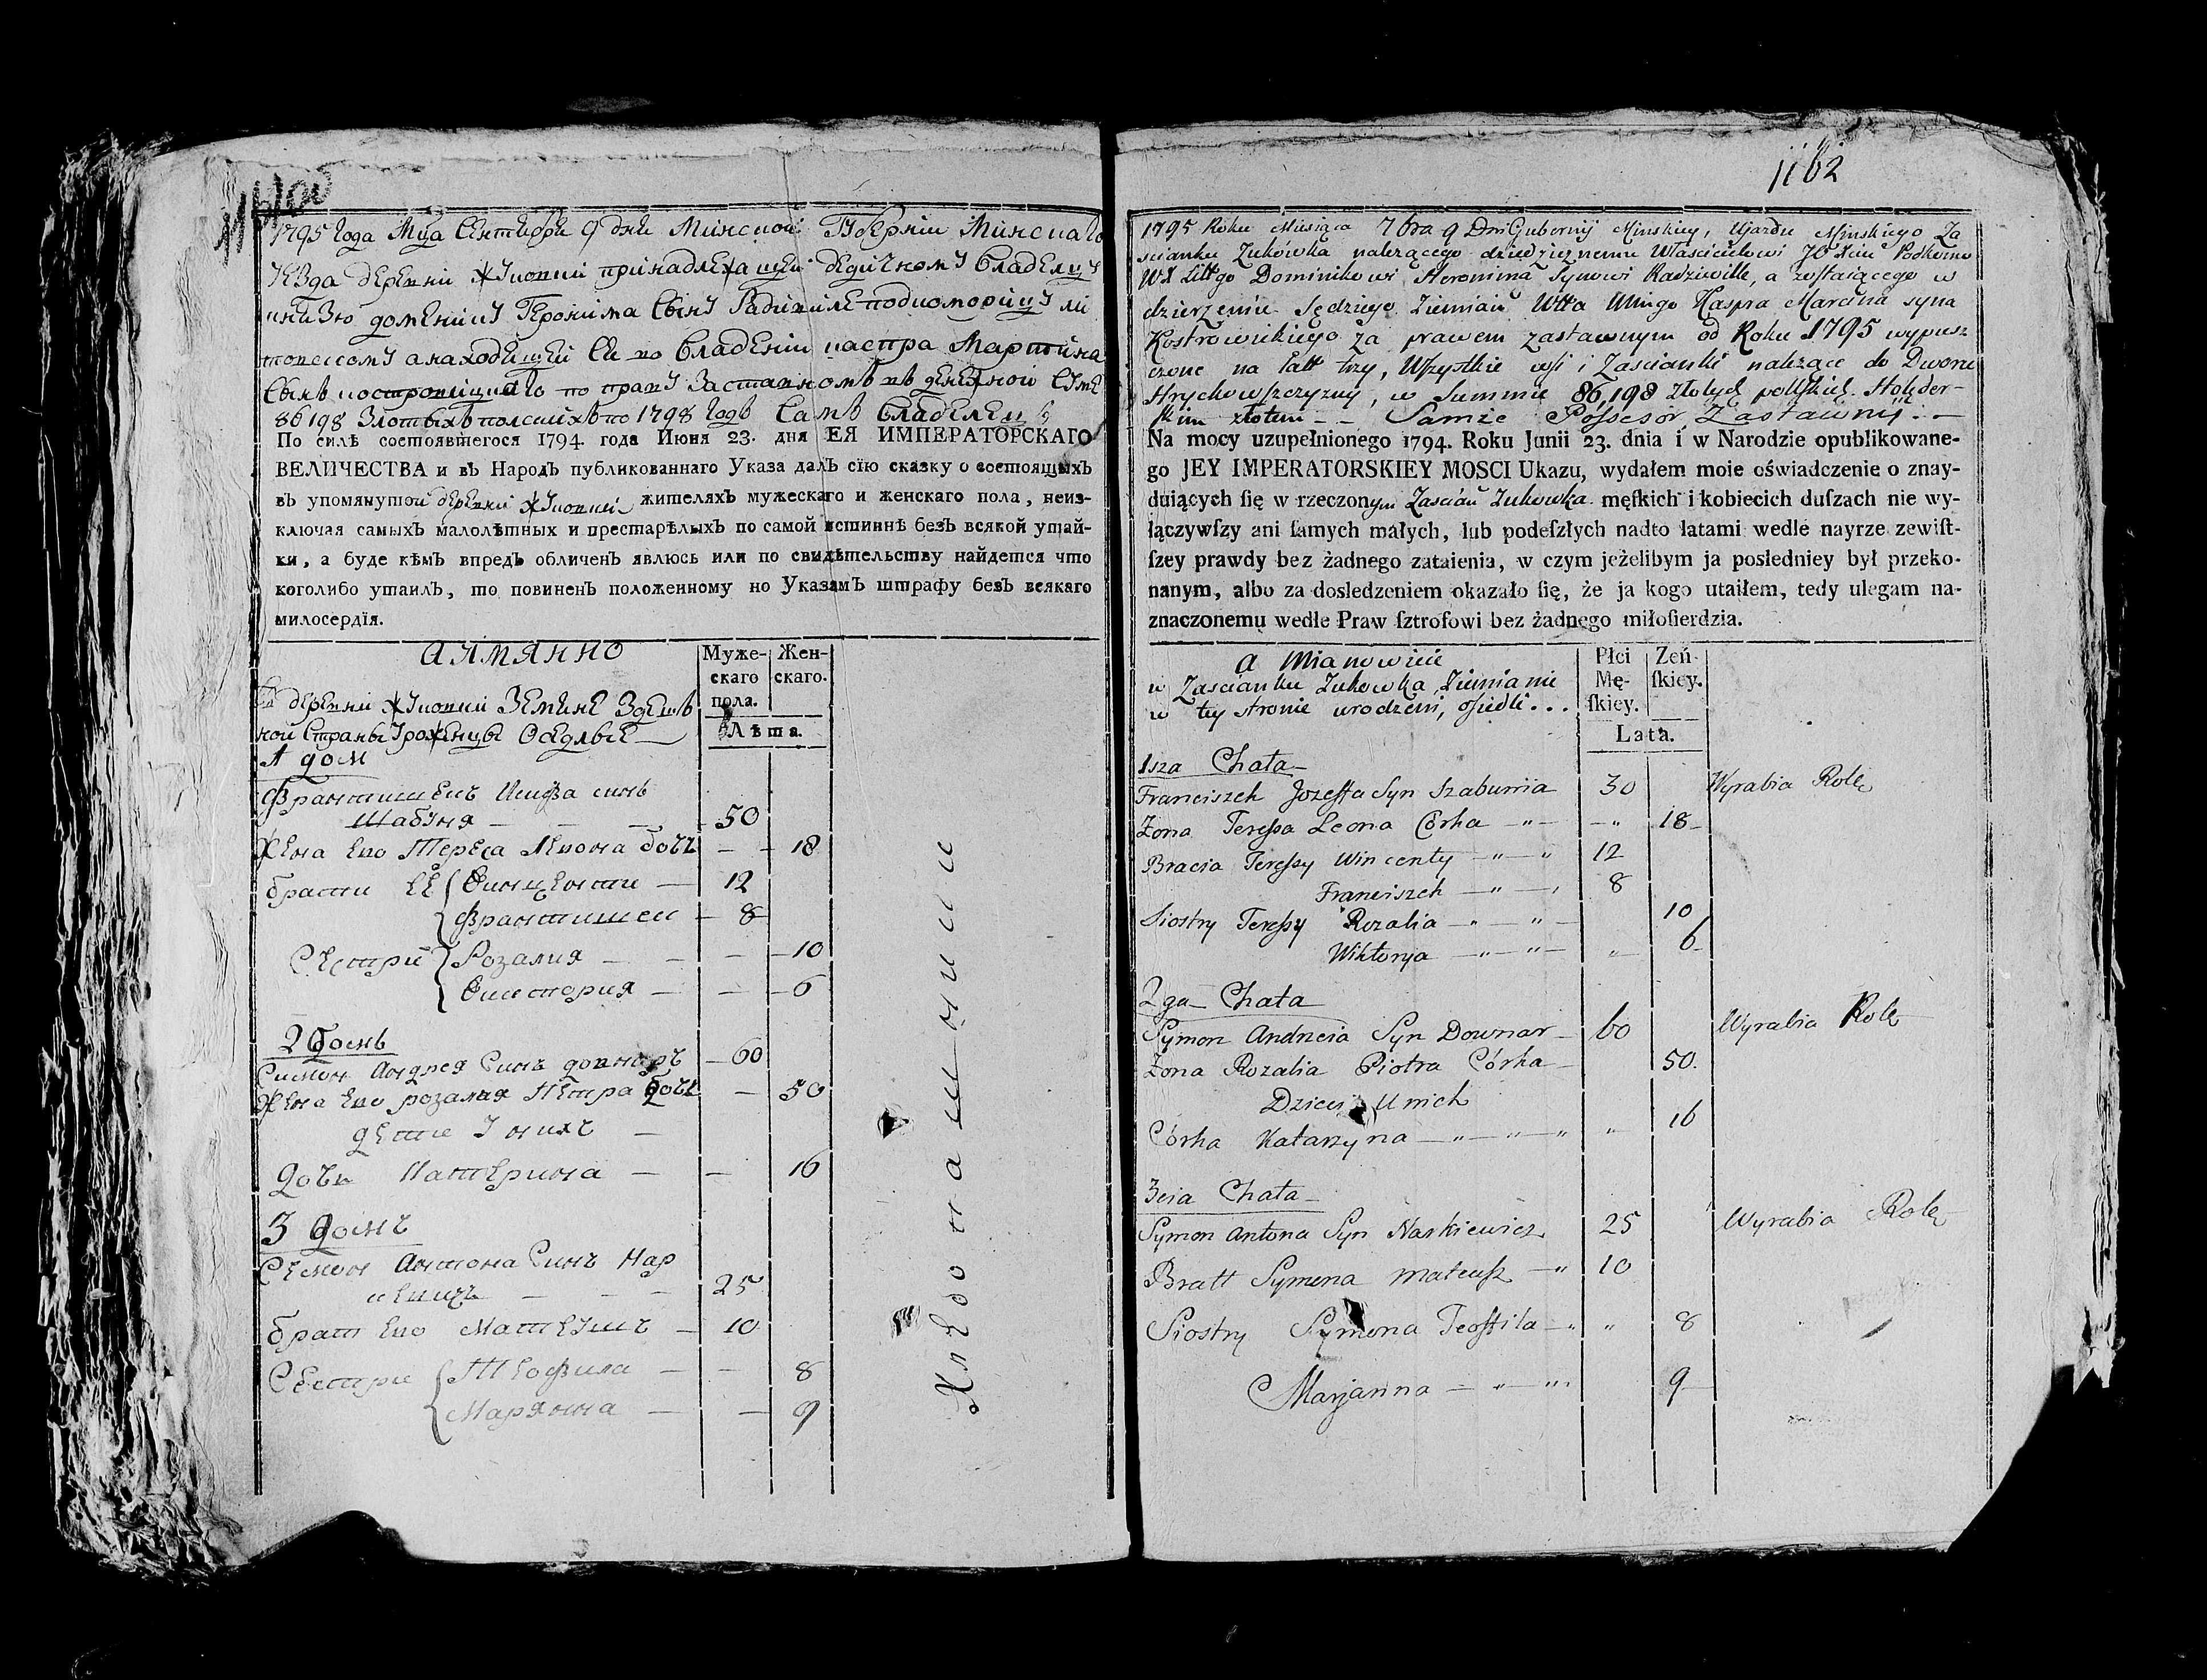 1795 Года Мца Сентибри 9 дни Минской Губернии Минскаго
Уезда деревни Жуковки принадлежащей дедичному Владелцу
князю доменику Геронима Сыну Радивиле подкоморицу ли
товскому а находещей се во Владении каспра Мартина
Сына костровицкаго по праву Заставномъ въ денежной Суме
86198 Злотыхъ полскихъ по 1798 Годъ Самъ Владелец
По силѣ состоявшегося 1794. года Июня 23. дня ЕЯ ИМПЕРАТОРСКАГО
ВЕЛИЧЕСТВА и въ Народъ публикованнаго Указа далъ сїю сказку о состоящыхъ
въ упомянутой деревни Жуковки жителяхъ мужескаго и женскаго пола, неиз-
ключая самыхъ малолѣтныхъ и престарѣлыхъ по самой истиннѣ безъ всякой утай-
ки, а буде кѣмъ впредь обличенъ явлюсь или по свидѣтельству найдется что
коголибо утаилъ, то повиненъ положенному но Указамъ штрафу безъ всякаго
милосердїя.
а имянно
Муже-
скаго
пола.
Жен-
скаго.
Лѣта.
деревни Жуковки Земяне Здешъ
ной Страны Уроженцы Оседлые
1 дом
Франтишекъ Иозефа синъ
Шабуня — 50
Жена Его Тереса Леона дочъ — 18
брати ЕЕ Винценти — 12
Франтишек — 8
Сестри Розалия — 10
Виктория — 6
2 домъ
Симон Андрея Синъ довнаръ — 60
Жена Его розалия Петра дочъ — 50
дети У нихъ —
дочъ Катерина — 16
3 домъ
Семон Антона Синъ Нар
кевичъ — 25
брат Его Матеушъ — 10
Сестри Теофила — 8
Марянна — 9
Хлебопашники
1162
1795 Roku Miesiąca 7bra 9 Dnia Gubernij Minskiey, Ujazdu Minskiego Za
scianku Zukówka nalezącego dziedzicznemu Właścicielowi JO Xciu Podkomo
WX Littgo Dominikowi Heronima Synowi Radziwille, a zostaiącego w
dzierzeniu Sędziego Ziemian Wttа Mingo Kaspra Marcina syna
Kostrowickiego za prawem zastawnym od Roku 1795 wypusz
czone na latt trzy, Wszystkie wsi i Zascianki nalezące do Dworu
Hryckowszczyzny, w Summie 86,198 złotych polskich Hollęder-
skim złotem — Samże Possesor Zastawny —
Na mocy uzupełnionego 1794. Roku Junii 23. dnia i w Narodzie opublikowane-
go JEY IMPERATORSKIEY MOSCI Ukazu, wydałem moie oświadczenie o znay-
duiących ſię w rzeczonym Zascian Zukowka męſkich i kobiecich duſzach nie wy-
łączywſzy ani ſamych małych, lub podeſzłych nadto latami wedle nayrze zewiſt-
ſzey prawdy bez żadnego zataienia, w czym jeżelibym ja posledniey był przeko-
nanym, albo za dosledzeniem okazało ſię, że ja kogo utaiłem, tedy ulegam na-
znaczonemu wedle Praw ſztrofowi bez żadnego miłoſierdzia.
a Mianowicie
w Zascianku Zukowka Ziemianie
w tey stronie urodzeni, osiedli...
Płci
Mę-
ſkiey.
Zeń-
ſkiey.
Lata.
1sza Chata
Franciszek Jozeffa Syn Szabunia 30 Wyrabia Rolę
Zona Teressa Leona Córka — 18
Bracia Teressy Wincenty — 12
Franciszek — 8
Siostry Teressy Rozalia — 10
Wiktorya — 6
2ga Chata
Symon Andrzeia Syn Downar 60 Wyrabia Rolę
Zona Rozalia Piotra Córka 50.
Dzieci U nich
Córka Katarzyna — 16
3cia Chata
Symon Antona Syn Narkiewicz 25 Wyrabia Rolę
Bratt Symona Mateusz — 10
Siostry Symona Teoffila — 8
Marjanna — 9